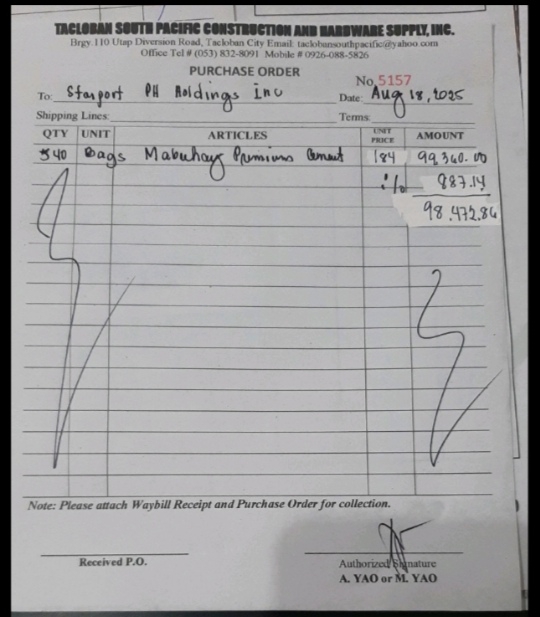 TACLOBAN SOUTH PACIFIC CONSTRUCTION AND HARDWARE SUPPLY, INC.
Brgy 110 Utap Diversion Road, Tacloban City Email: taclobansouthpacific@yahoo.com
Office Tel # (053) 832-8091 Mobile # 0926-088-5826
PURCHASE ORDER
No. 5157
To: Starport PH Holdings Inc Date: Aug 18, 2025
Shipping Lines: Terms:
QTY UNIT ARTICLES UNIT PRICE AMOUNT
540 Bags Mabuhay Premium Cement 184 99,360.00
1% 887.14
98,472.86
Note: Please attach Waybill Receipt and Purchase Order for collection.
Received P.O. Authorized Signature
A. YAO or M. YAO